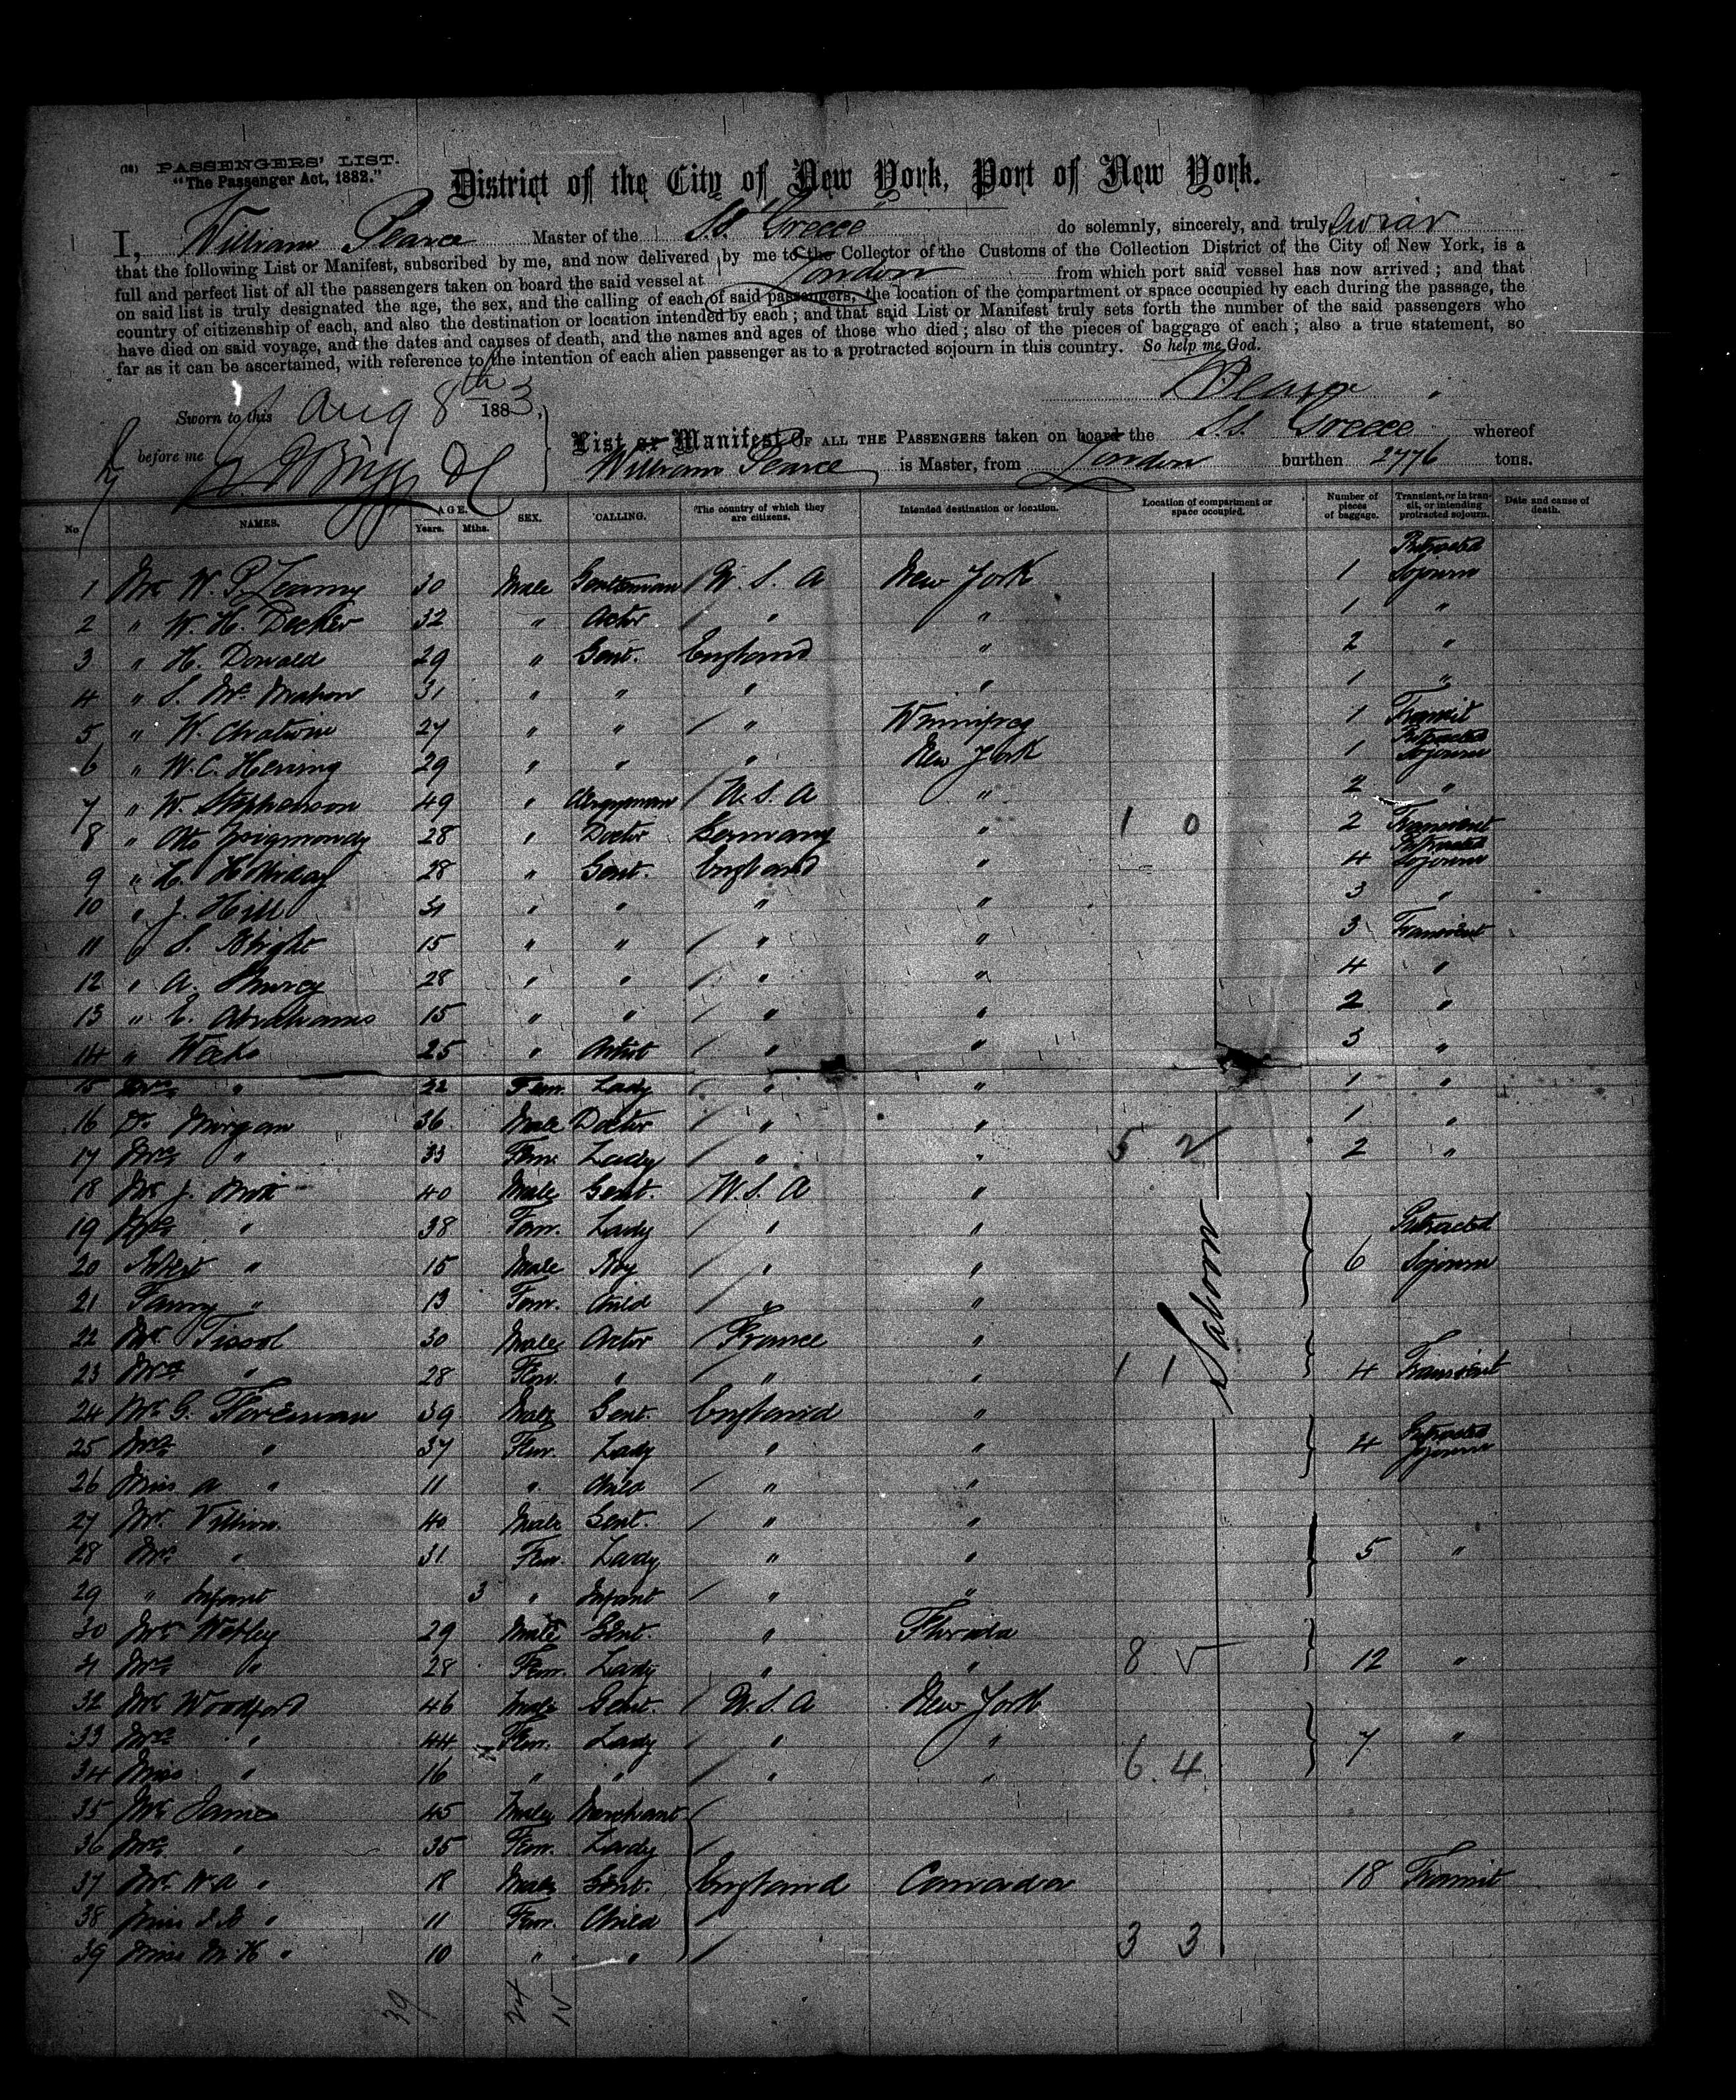 (18) PASSENGERS' LIST.
"The Passenger Act, 1882."
District of the City of New York, Port of New York.
I, William Pearce Master of the S.S. Greece do solemnly, sincerely, and truly swear
that the following List or Manifest, subscribed by me, and now delivered by me to the Collector of the Customs of the Collection District of the City of New York, is a
full and perfect list of all the passengers taken on board the said vessel at London from which port said vessel has now arrived; and that
on said list is truly designated the age, the sex, and the calling of each of said passengers, the location of the compartment or space occupied by each during the passage, the
country of citizenship of each, and also the destination or location intended by each; and that said List or Manifest truly sets forth the number of the said passengers who
have died on said voyage, and the dates and causes of death, and the names and ages of those who died; also of the pieces of baggage of each; also a true statement, so
far as it can be ascertained, with reference to the intention of each alien passenger as to a protracted sojourn in this country. So help me God.
W Pearce
Sworn to this Aug 8th 1883,
before me
List or Manifest OF ALL THE PASSENGERS taken on board the S.S. Greece whereof
William Pearce is Master, from London burthen 2776 tons.
No NAMES. AGE. Years. Mths. SEX. CALLING. The country of which they are citizens. Intended destination or location. Location of compartment or space occupied. Number of pieces of baggage. Transient, or in transit, or intending protracted sojourn. Date and cause of death.
1 Mr W. P. 30 Male Gentleman U.S.A New York 1 Protracted Sojourn
2 " W. H. Decker 32 " Actor " " 1 "
3 " H. Donald 29 " Gent. England " 2 "
4 " S. Mc Mahon 31 " " " " 1 "
5 " W. 27 " " " Winnipeg 1 Transit
6 " W. C. Hening 29 " " " New York 1 Protracted Sojourn
7 " W. Stephenson 49 " Clergyman U.S.A " 2 "
8 " Otto Zsigmondy 28 " Doctor Germany " 1 0 2 Transient
9 " H. Holliday 28 " Gent. England " 4 Protracted Sojourn
10 " J. Hill 31 " " " " 3 "
11 " S. 15 " " " " 3 Transient
12 " A. 28 " " " " 4 "
13 " E. Abrahams 15 " " " " 2 "
14 " Weeks 25 " Artist " " 3 "
15 Mrs " 22 Fem. Lady " " 1 "
16 Dr Morgan 36 Male Doctor " " 1 "
17 Mrs " 33 Fem. Lady " " 5 2 2 "
18 Mr J. 40 Male Gent. U.S.A "
19 Mrs " 38 Fem. Lady " " Protracted
20 " 15 Male Boy " " 6 Sojourn
21 Fanny " 13 Fem. Child " "
22 Mr Tissot 30 Male Actor France "
23 Mrs " 28 Fem. " " " 1 1 Saloon 4 Transient
24 Mr G. Foreman 39 Male Gent. England "
25 Mrs " 37 Fem. Lady " " 4 Protracted Sojourn
26 Miss A " 11 " Child " "
27 Mr. 40 Male Gent. " "
28 Mrs " 31 Fem. Lady " " 5 "
29 " Infant 3 " Infant " "
30 Mr Watley 29 Male Gent. " Florida
31 Mrs " 28 Fem. Lady " " 8 12 "
32 Mr Woodford 46 Male Gent. U.S.A New York
33 Mrs " 44 Fem. Lady " " 7 "
34 Miss " 16 " " " " 6 4
35 Mr James 45 Male Merchant
36 Mrs " 35 Fem. Lady
37 Mr. W. A " 18 Male Gent. England Canada 18 Transit
38 Miss " 11 Fem. Child
39 Miss M. H " 10 " " 3 3
39 24 15